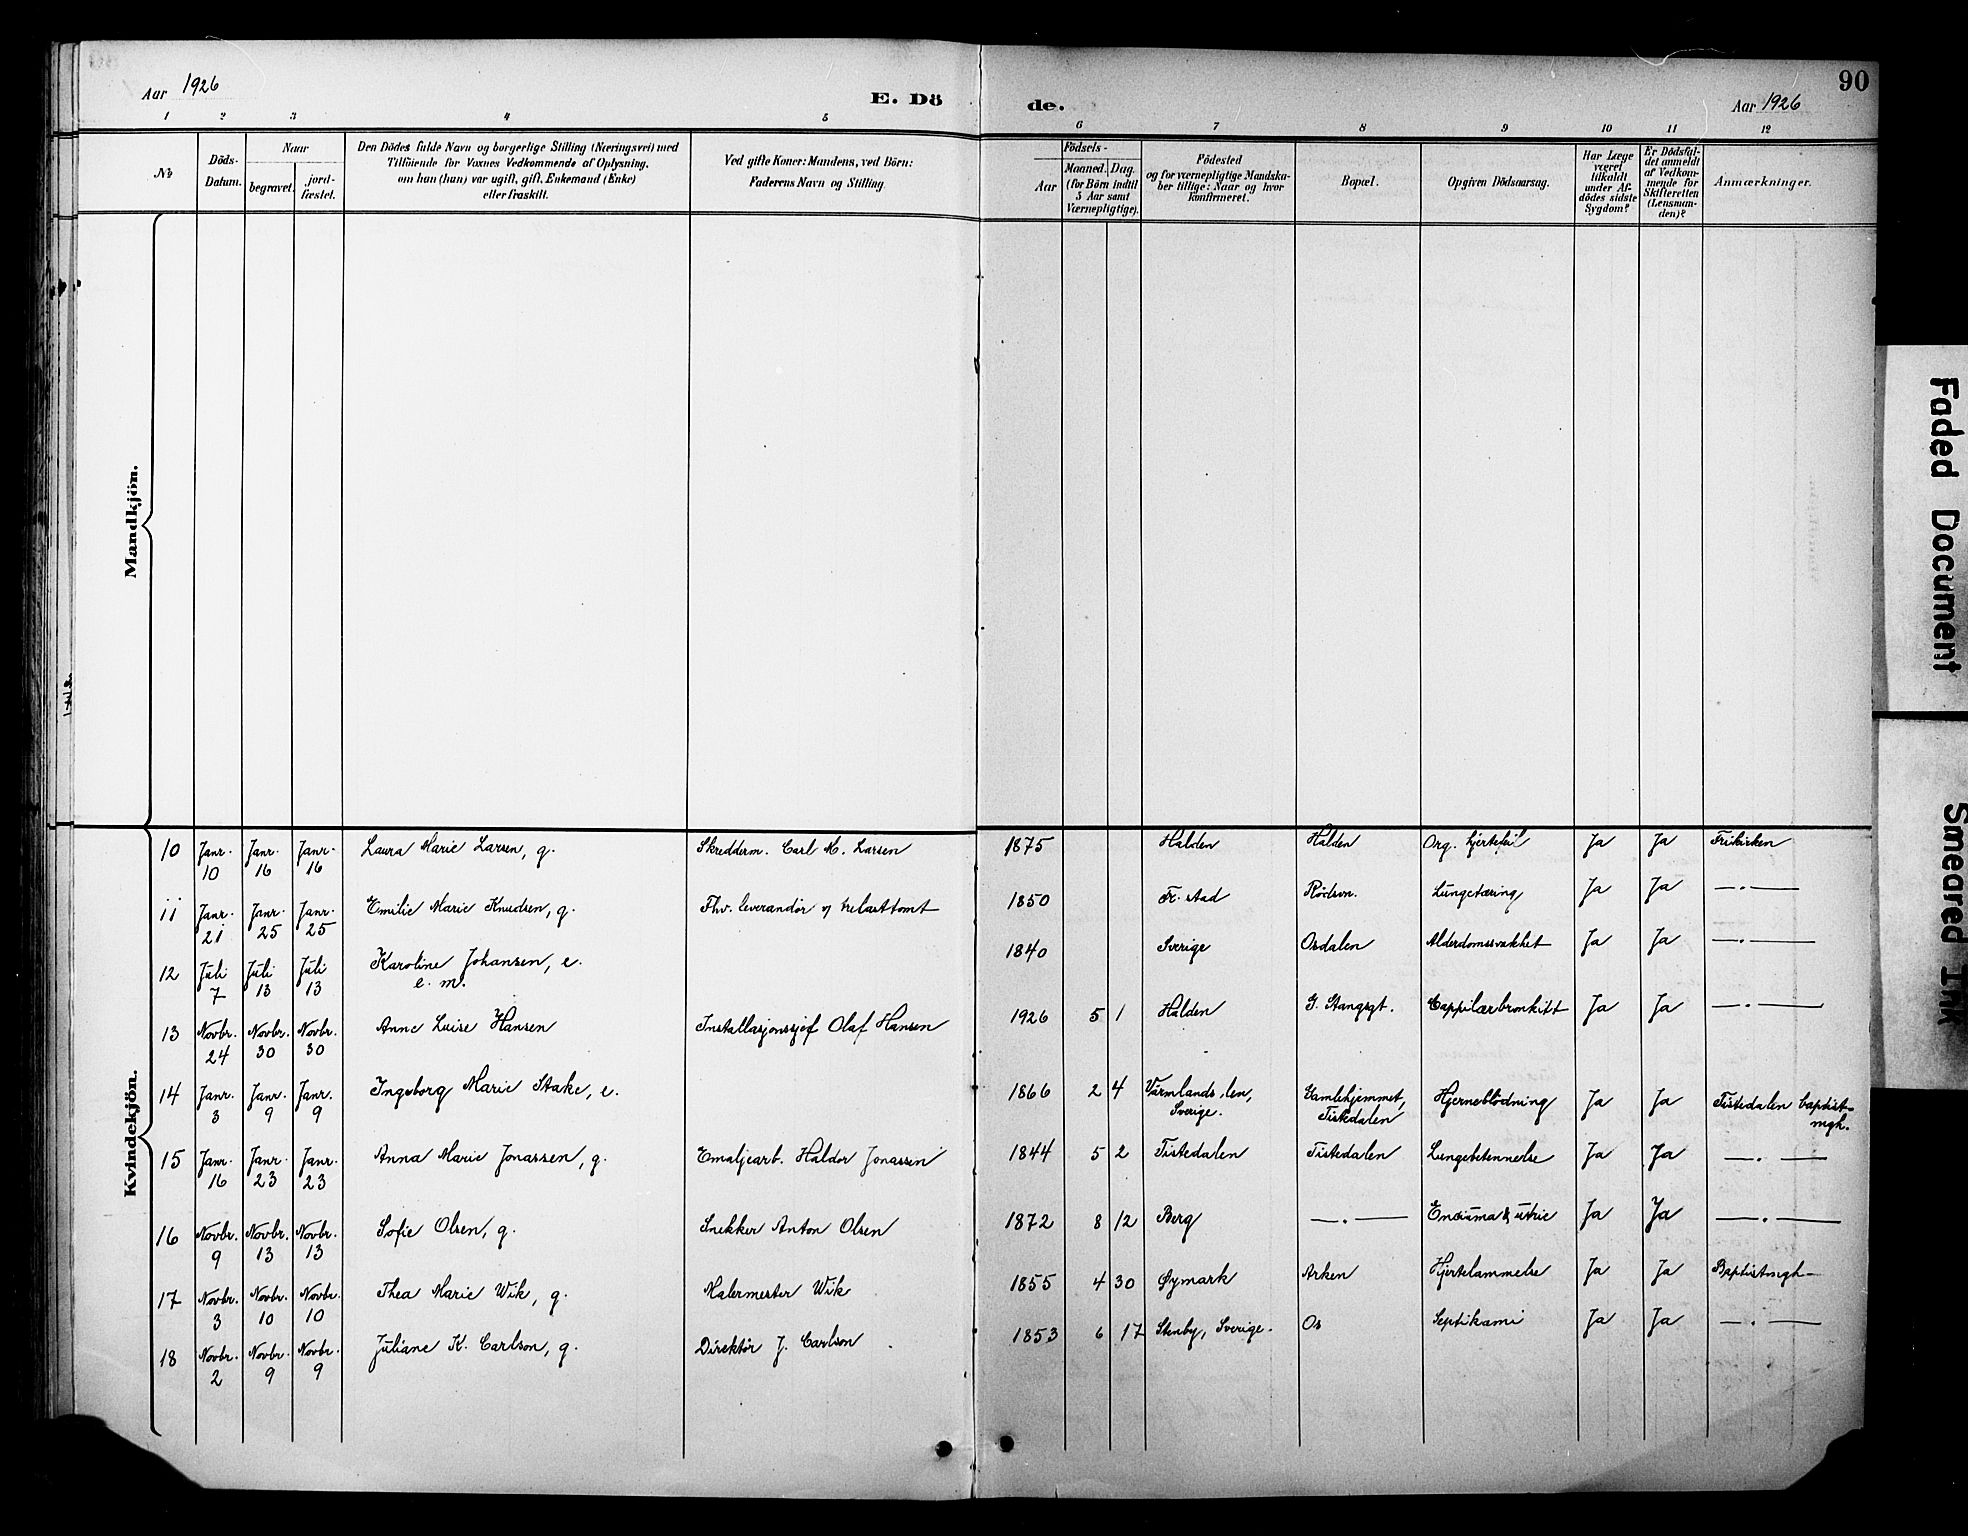 90
Aar 1926
E. Dö
de.
Aar 1926
1 2 3 4 5 6 7 8 9 10 11 12
№
Döds-
Datum.
Naar
begravet.
jord-
fæstet.
Den Dödes fulde Navn og borgerlige Stilling (Næringsvei) med
Tilföiende for Voxnes Vedkommende af Oplysning,
om han (hun) var ugift, gift, Enkemand (Enke)
eller fraskilt.
Ved gifte Koner: Mandens, ved Börn:
Faderens Navn og Stilling.
Födsels-
Aar
Maaned. Dag.
(for Börn indtil
5 Aar samt
Værnepligtige).
Födested
og for værnepligtige Mandska-
ber tillige: Naar og hvor
konfirmeret.
Bopæl.
Opgiven Dödsaarsag.
Har Læge
været
tilkaldt
under Af-
dödes sidste
Sygdom?
Er Dödsfal-
det anmeldt
af Vedkom-
mende for
Skifteretten
(Lensman-
den)?
Anmærkninger.
Mandkjön.
Kvindekjön.
10 Janr. 10 Janr. 16 Janr. 16 Laura Marie Larsen, g. Skredderm. Carl M. Larsen 1875 Halden Halden Org. hjertefeil Ja Ja Frikirken
11 Janr. 21 Janr. 25 Janr. 25 Emilie Marie Knudsen, g. Fhv. leverandör 1850 Fr.stad Rödsen. Lungetæring Ja Ja —.—
12 Juli 7 Juli 13 Juli 13 Karoline Johansen, e. e. m. 1840 Sverige Osdalen Alderdomssvakhet Ja Ja —.—
13 Novbr. 24 Novbr. 30 Novbr. 30 Anne Luise Hansen Installasjonssjef Olaf Hansen 1926 5 1 Halden G. Stangsgt. Cappilærbronkitt Ja Ja —.—
14 Janr. 3 Janr. 9 Janr. 9 Ingeborg Marie Stake, e. 1866 2 4 Värmlands len, Sverige. Gamlehjemmet, Tistedalen Hjerneblödning Ja Ja Tistedalen baptist-mgh.
15 Janr. 16 Janr. 23 Janr. 23 Anna Marie Jonassen, g. Emaljearb. Haldor Jonassen 1844 5 2 Tistedalen Tistedalen Lungebetennelse Ja Ja —.—
16 Novbr. 9 Novbr. 13 Novbr. 13 Sofie Olsen, g. Snekker Anton Olsen 1872 8 12 Berg —.— Ja Ja —.—
17 Novbr. 3 Novbr. 10 Novbr. 10 Thea Marie Wik, g. Malermester Wik 1855 4 30 Øymark Arken Hjertelammelse Ja Ja Baptistmgh-
18 Novbr. 2 Novbr. 9 Novbr. 9 Juliane K. Carlson, g. Direktör J. Carlson 1853 6 17 Stenby, Sverige. Os Septikami Ja Ja —.—
Faded Document
Smeared Ink